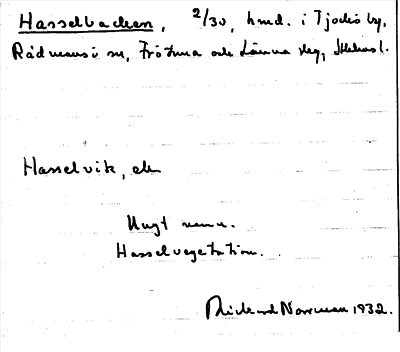 Hasselbacken, 2/30, hmd. i Tjockö by,
Rådmansö sn, Frötuna och Länna slg, Sthlms l.
Hasselvik, den
Ungt namn.
Hasselvegetation.
Rickard Norrman 1932.